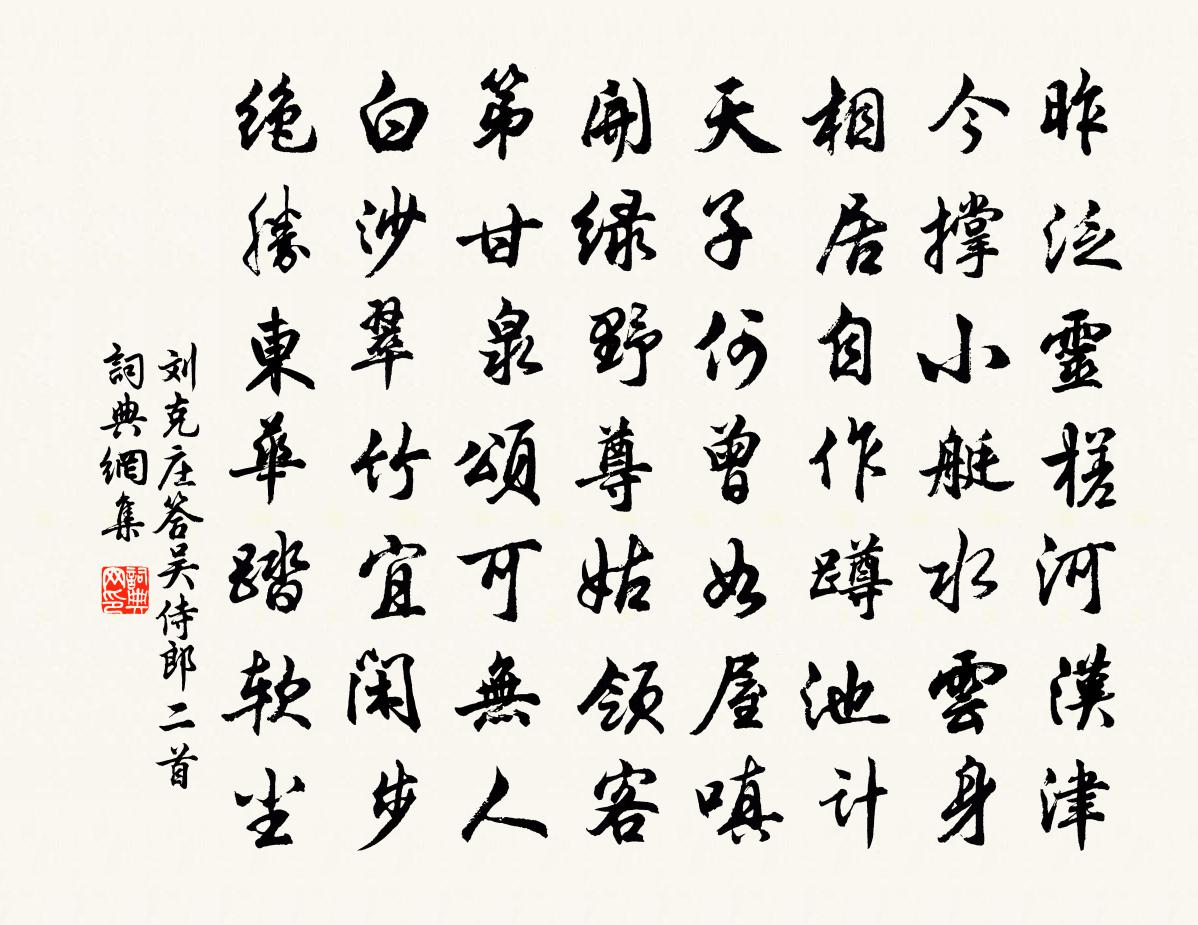 昨泛靈槎河漢津
今撐小艇水雲身
相居自作蹲池計
天子何曾如屋嗔
開緑野尊姑領客
第甘泉頌可無人
白沙翠竹宜閑步
絶勝東華踏軟塵
刘克庄答吴侍郎二首
詞典網集
詞典網印